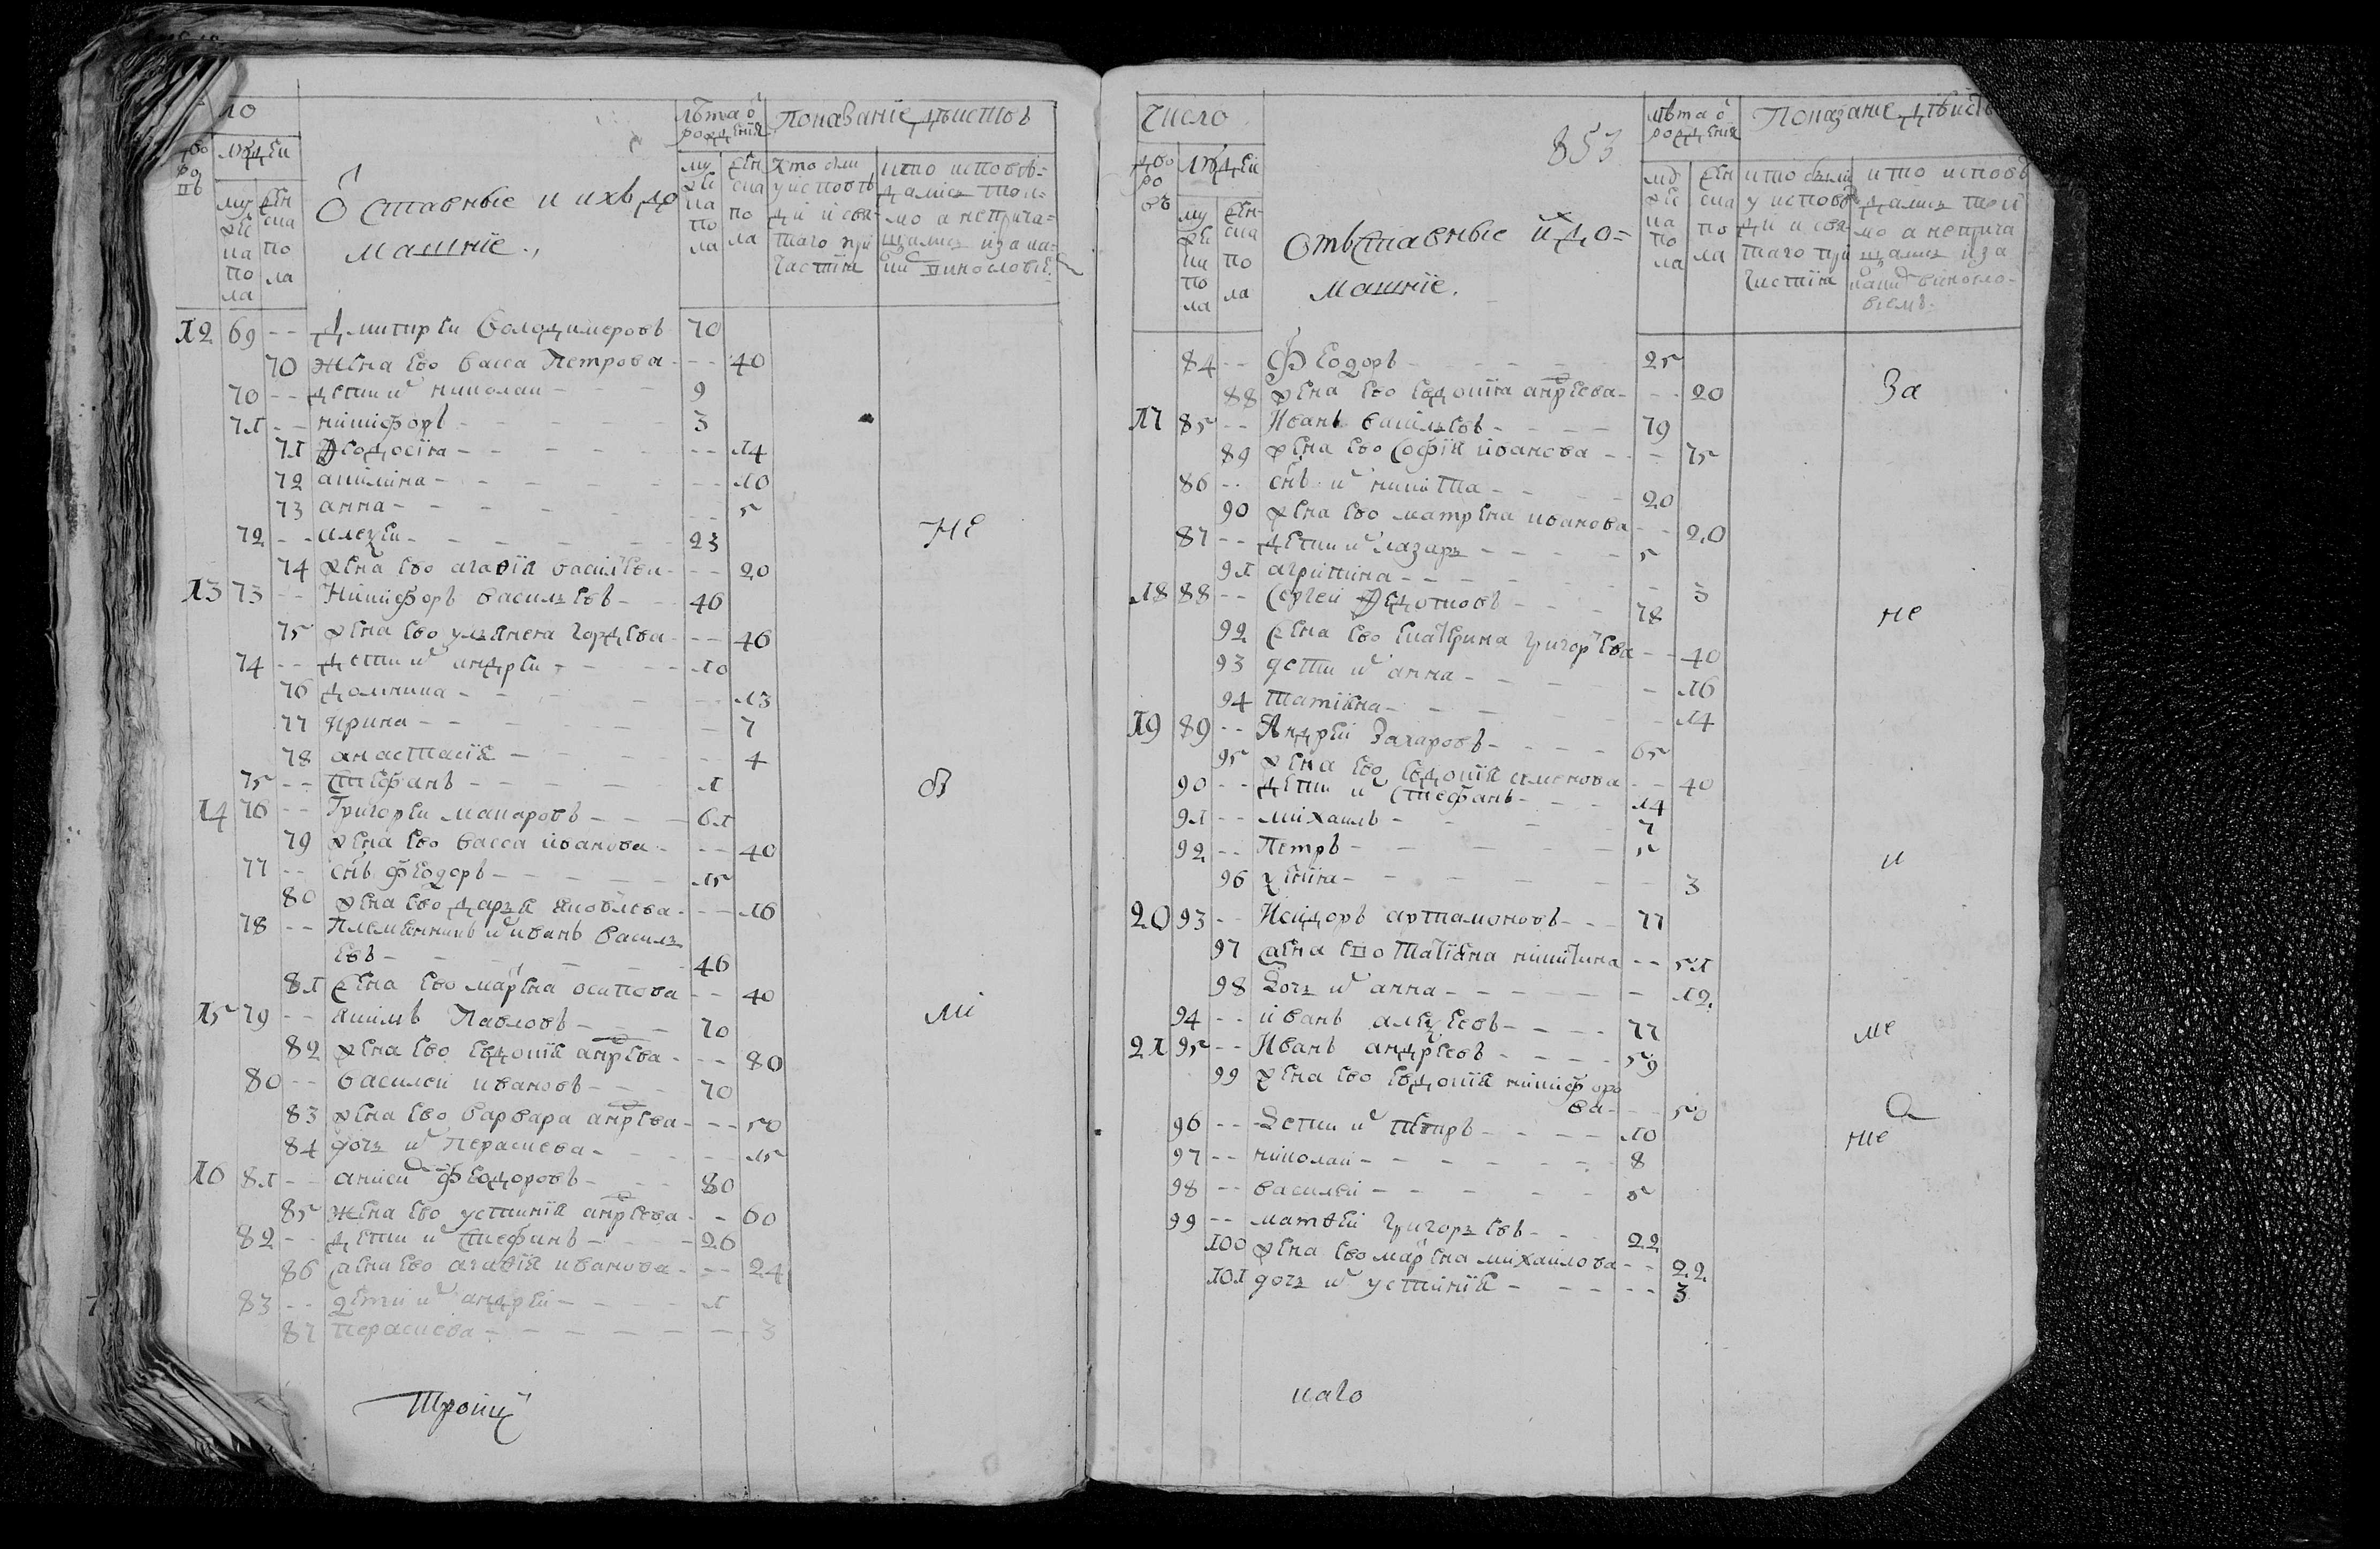 ло
дво
ро
въ
людей
му
же
ска
по
ла
жен
ска
по
ла
Отставные и ихъ до
машние.
лѣта о
рождения
му
же
ска
по
ла
жен
ска
по
ла
Показание действ
кто были
у исповѣ
ди и свя
таго при
частия
кто исповѣ=
дались тол=
ко а неприча=
щались и за ка=
12 69 -- Дмитрей Володимеровъ 70
70 жена ево васса Петрова -- 40
70 -- дети их николаи 9
71 -- никифоръ 3
71 Феодосия -- 14
72 акилина -- 10
73 анна -- 5
72 -- алеѯеи 23
74 жена ево агафiя василева -- 20
13 73 -- Никифоръ васильевъ 46
75 жена ево ульянена Гордева -- 46
74 -- дети их андреи 10
76 домника -- 13
77 ирина -- 7
78 анастасiя -- 4
75 -- Стефанъ 1
14 76 -- Григореи макаровъ 61
79 жена ево васса иванова -- 40
77 -- снъ Феодоръ 15
80 жена ево дарья яковлева -- 16
78 -- Племянникъ иванъ василь
евъ 46
81 жена ево марена осипова -- 40
15 79 -- якимъ Павловъ 70
82 жена ево евдокiя андрева -- 80
80 -- василеи ивановъ 70
83 жена ево варвара андрева -- 50
84 дочь их Параскева -- 15
16 81 -- аникеи Феодоровъ 80
85 жена ево устинiя андреева -- 60
82 -- дети их Стефанъ 26
86 жена ево агафiя иванова -- 24
83 -- дети их андреи 1
87 Параскева -- 3
не
в
ми
Троиц
число
дво
ро
въ
людей
му
же
ска
по
ла
жен
ска
по
ла
853
Отъставные и до=
машние.
лѣта о
рождения
му
же
ска
по
ла
жен
ска
по
ла
Показание действ
кто были
у исповѣ
ди и свя
таго при
частия
кто исповѣ
дались тол
ко а неприча
щались и за
84 -- Феодоръ 25
88 жена ево евдокия андреева -- 20
17 85 -- Иванъ васильевъ 79
89 жена ево Софiя иванова -- 75
86 -- снъ их никита 20
90 жена ево матрена иванова -- 20
87 -- дети их лазарь 5
91 агрипина -- 3
18 88 -- Сергеи Федотовъ 78
92 жена ево екатерина григорева -- 40
93 дети их анна -- 16
94 татияна -- 14
19 89 -- Андреи Захаровъ 65
95 жена ево евдокiя семенова -- 40
90 -- дети их Стефанъ 14
91 -- михаилъ 7
92 -- Петръ 5
96 ѯения -- 3
20 93 -- Исидоръ артамоновъ 77
97 жена ево татияна никитина -- 51
98 дочь их анна -- 12
94 -- иванъ алеѯеевъ 77
21 95 -- Иванъ андреевъ 59
99 жена ево евдокiя никифоро
ва -- 50
96 -- дети их Петръ 10
97 -- николаи 8
98 -- василеи 5
99 -- матфеи григорьевъ 22
100 жена ево марена михаилова -- 22
101 дочь их устинiя -- 3
За
не
и
ме
не
каго